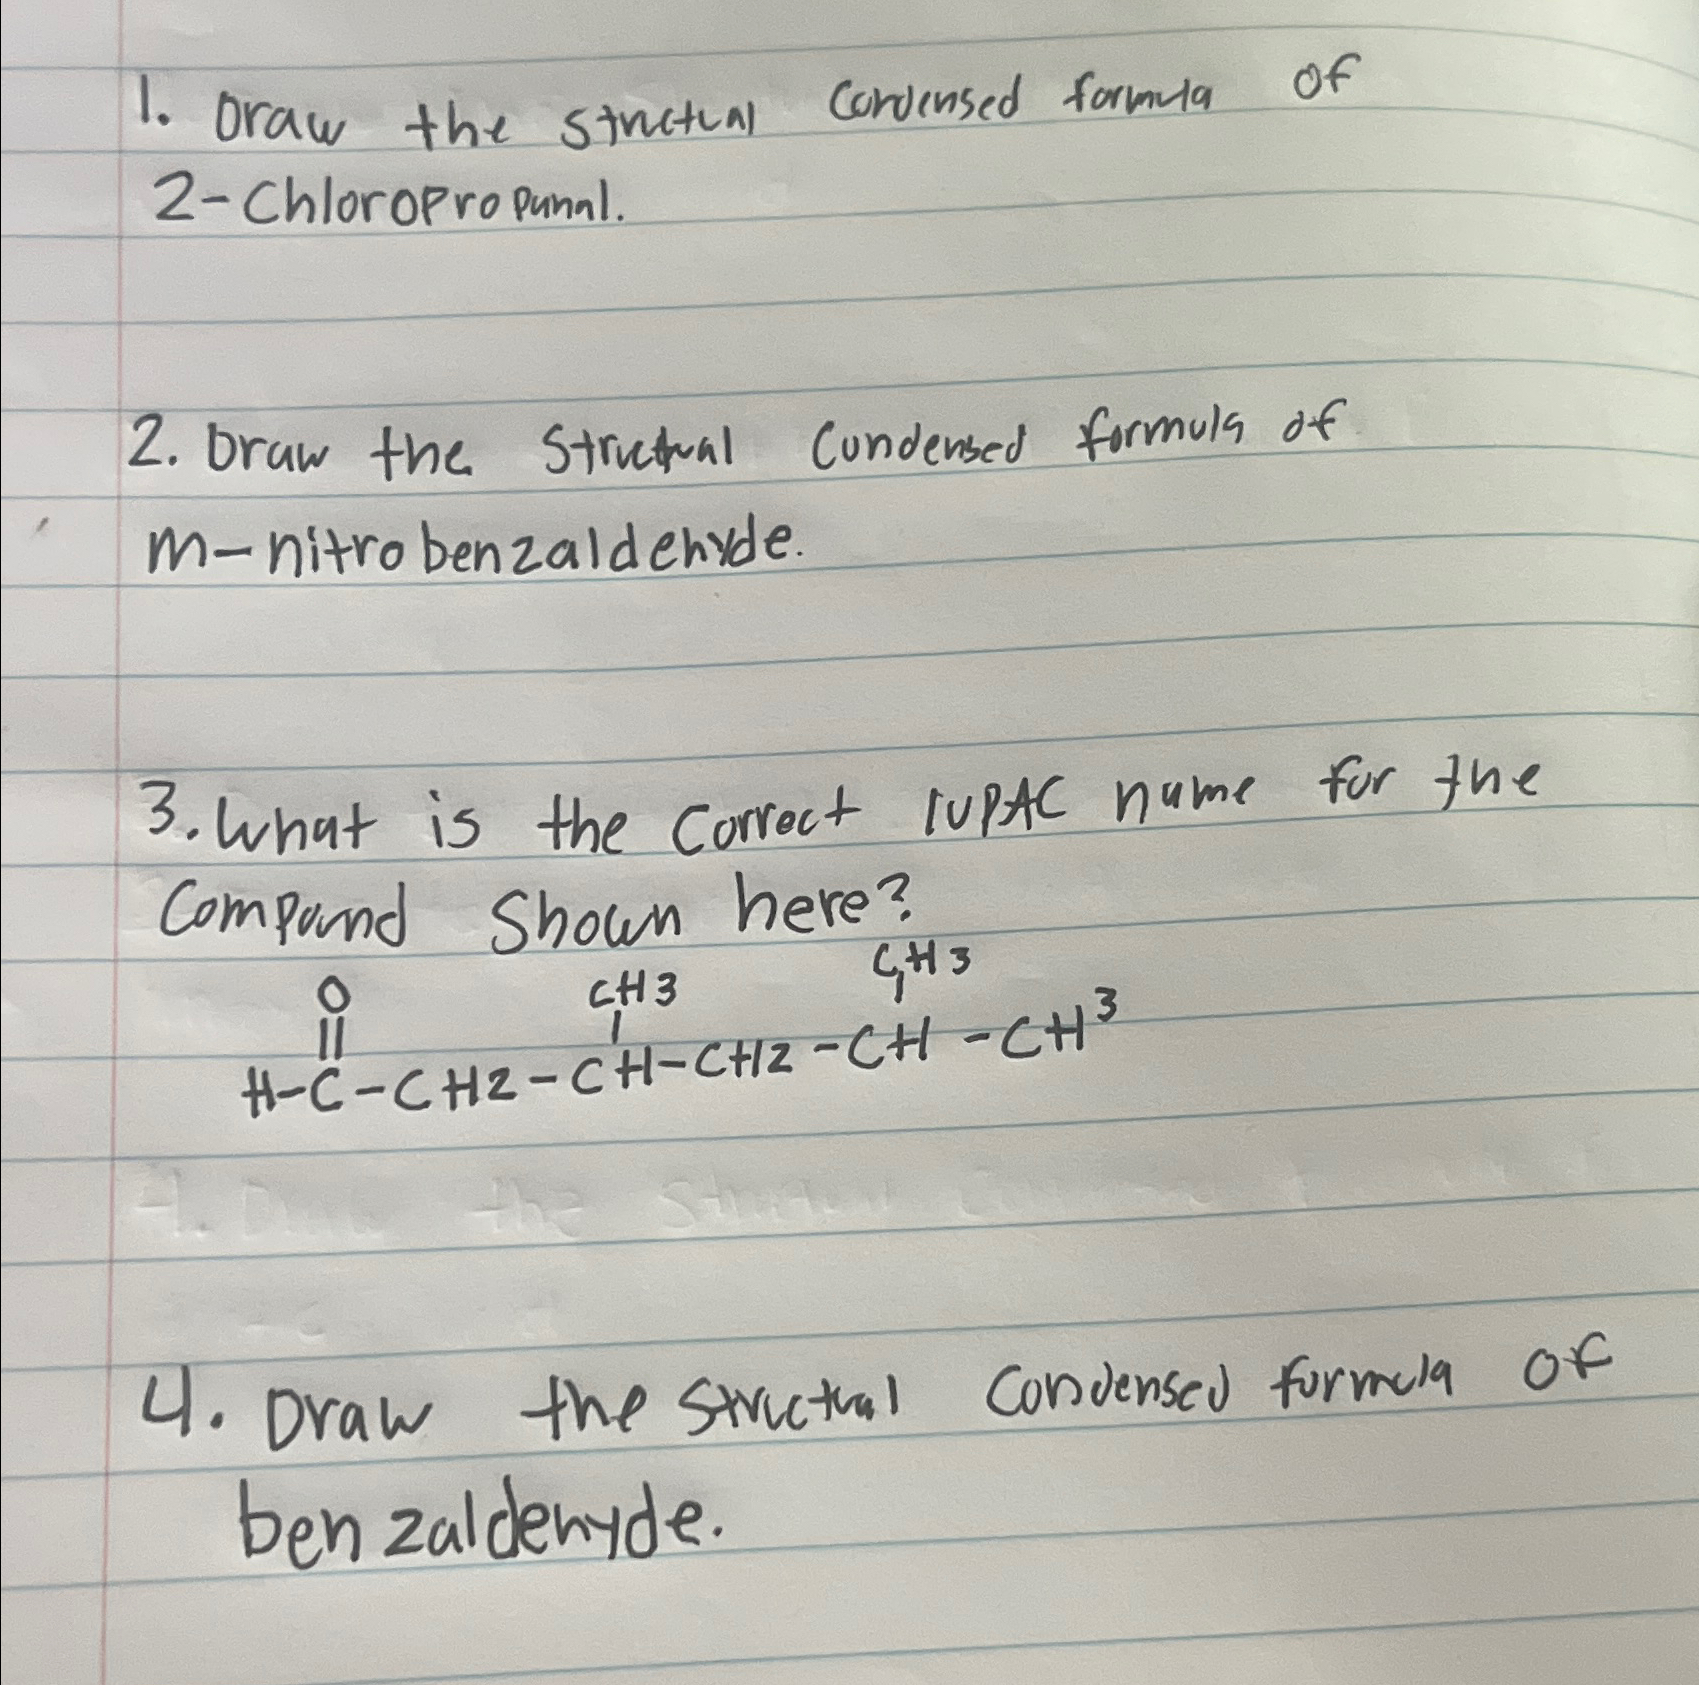 1. Draw the structual Condensed formula of
2-Chloropropanal.
2. Draw the Structual Condensed formula of
m-nitrobenzaldehyde.
3. What is the correct IUPAC name for the
Compound Shown here?
O CH3 CH3
H-C-CH2-CH-CH2-CH-CH3
4. Draw the Structual Condensed formula of
benzaldehyde.